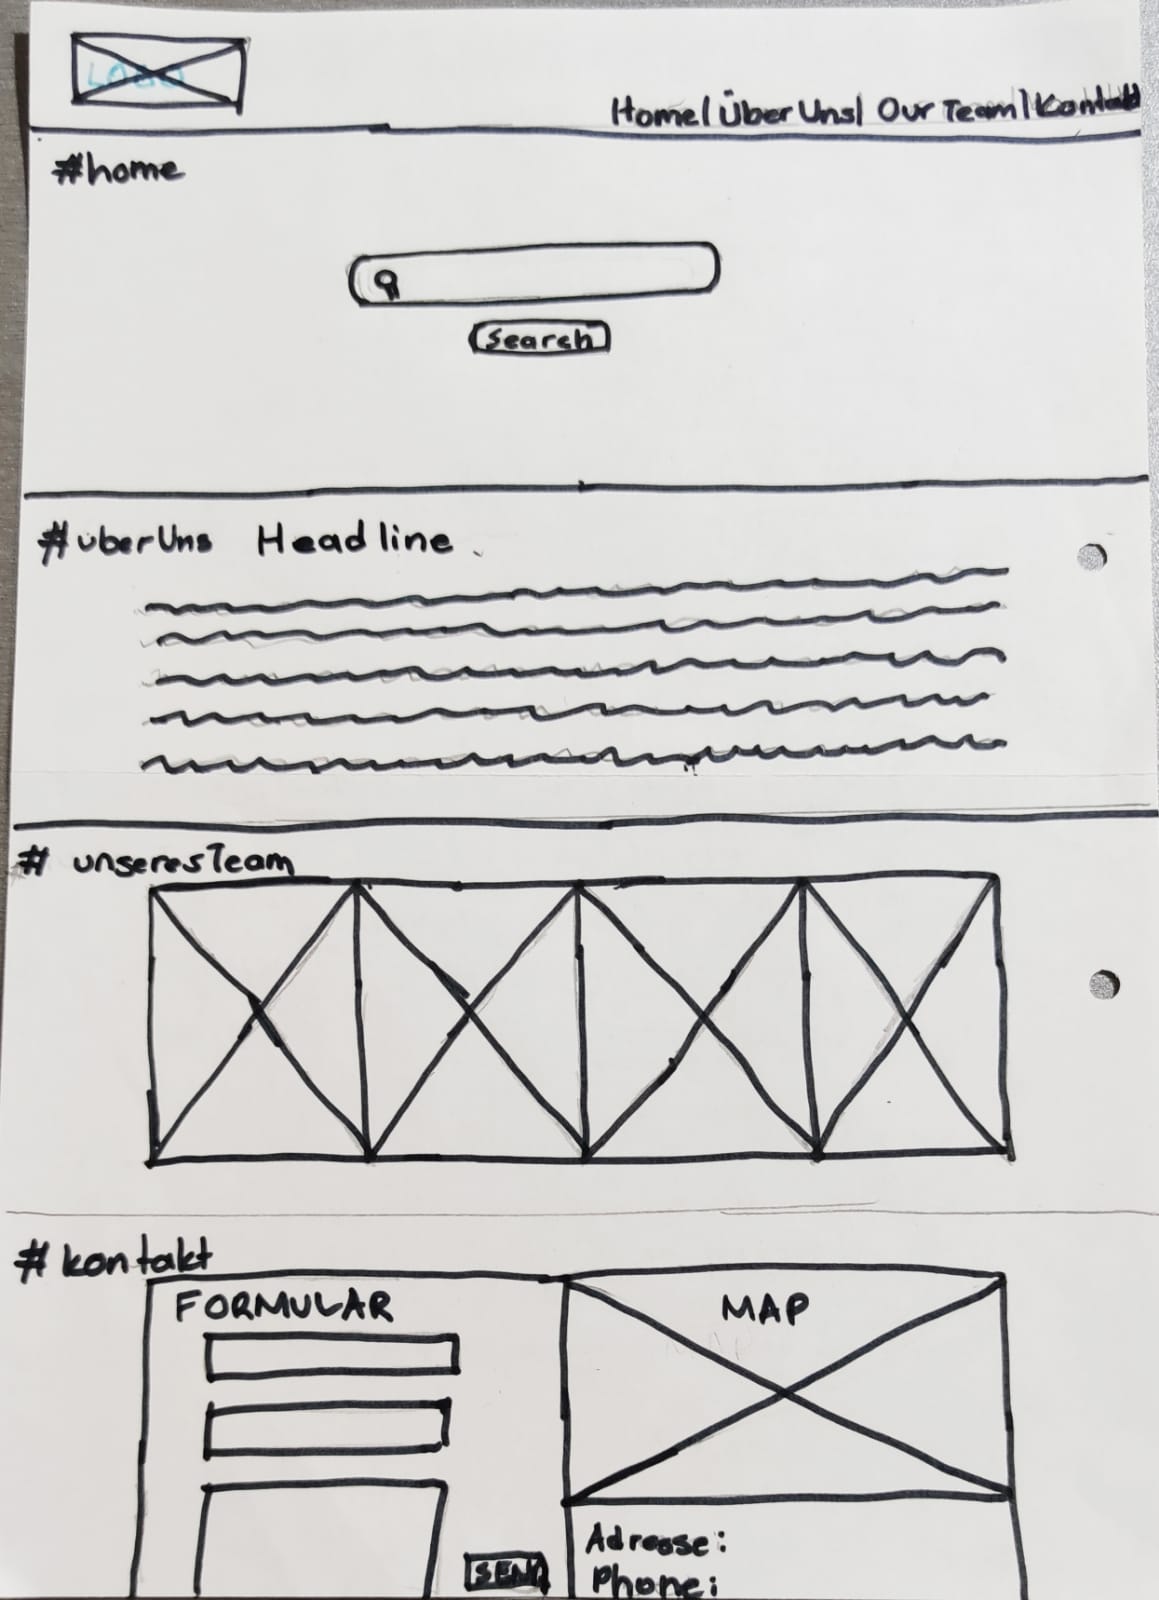 LOGO
Home| Über Uns| Our Team| Kontakt
#home
Search
#überUns Headline
# unseresTeam
# kontakt
FORMULAR
MAP
SEND
Adresse:
Phone: